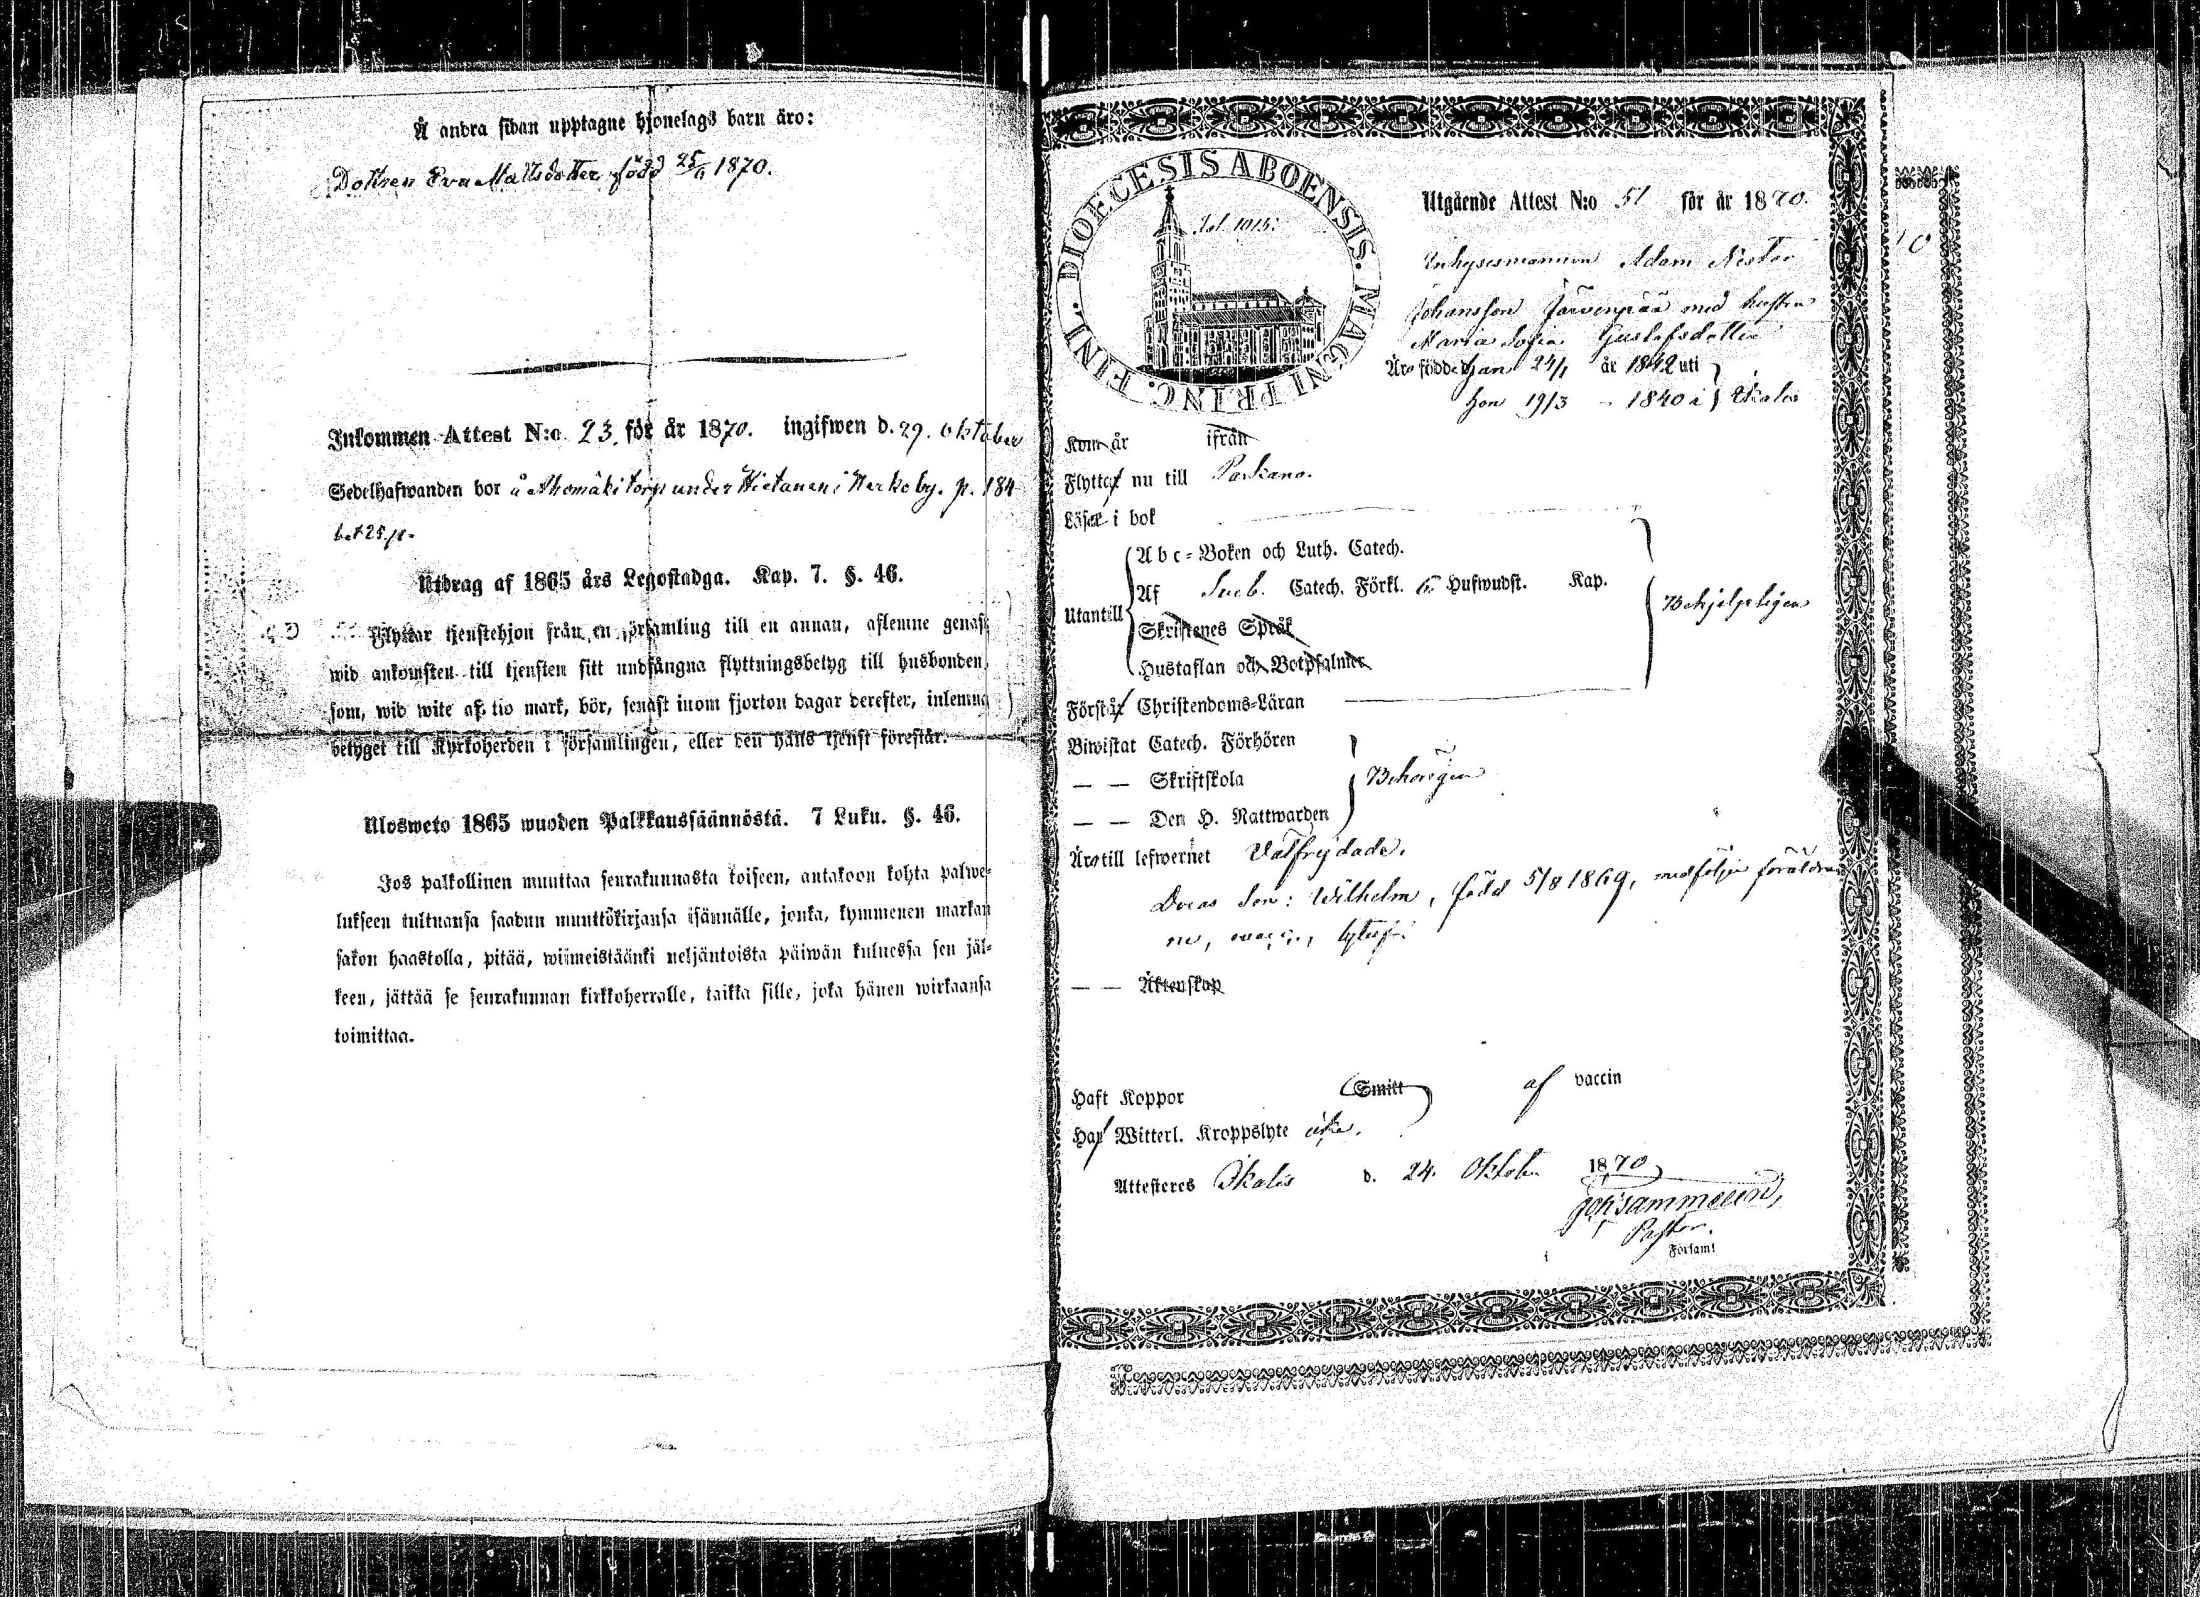 Å andra sidan upptagne hjonelags barn äro:
Dottren Eva Mattsdotter född 25/ 1870.
Inkommen Attest N:o 23. för år 1870. ingifwen d. 29. Oktober
Sedelhafwanden bor å Ahomäki torp under Hietanen i Nerko by. p. 184
bet 25 p.
Utdrag af 1865 års Legostadga. Kap. 7. §. 46.
Flyttar tjenstehjon från en församling till en annan, aflemne genast
wid ankomsten till tjensten sitt undfångna flyttningsbetyg till husbonden,
som, wid wite af tio mark, bör, senast inom fjorton dagar derefter, inlemna
betyget till Kyrkoherden i församlingen, eller den hans tjenst förestår.
Ulosweto 1865 wuoden Palkkaussäännöstä. 7 Luku. §. 46.
Jos palkollinen muuttaa seurakunnasta toiseen, antakoon kohta palwe-
lukseen tultuansa saadun muuttökirjansa isännälle, jonka, kymmenen markan
sakon haastolla, pitää, wiimeistäänki neljäntoista päiwän kuluessa sen jäl-
keen, jättää se seurakunnan kirkkoherralle, taikka sille, joka hänen wirkaansa
toimittaa.
DIOECESIS ABOENSIS. MAGNI PRINC. FINL.
Utgående Attest N:o 51 för år 1870.
Inhysesmannen Adam Nestor
Johansson Järvenpää med hustru
Maria Sofia Gustafsdotter
Äro födde han 24/1 år 1842 uti
hon 19/3 - 1840 i Ikalis
Kom år ifrån
Flytta nu till Parkano.
Läsa i bok
Abc-Boken och Luth. Catech.
Utantill Af Sueb. Catech. Förkl. 6 Hufwudst. Kap.
Behjelpligen
Skriftenes Språk
Hustaflan och Botpsalmer
Förstå Christendoms-Läran
Biwistat Catech. Förhören
— — Skriftskola Behörigen
— — Den H. Nattwarden
Äro till lefwernet Välfrejdade.
Deras Son: Wilhelm, född 5/8 1869, medfölje föräldrar
ne,
— — Äktenskap
Haft Koppor Smitt af vaccin
Haf Witterl. Kroppslyte icke.
Attesteres Ikalis d. 24. Oktober 1870
Pastor.
Församl